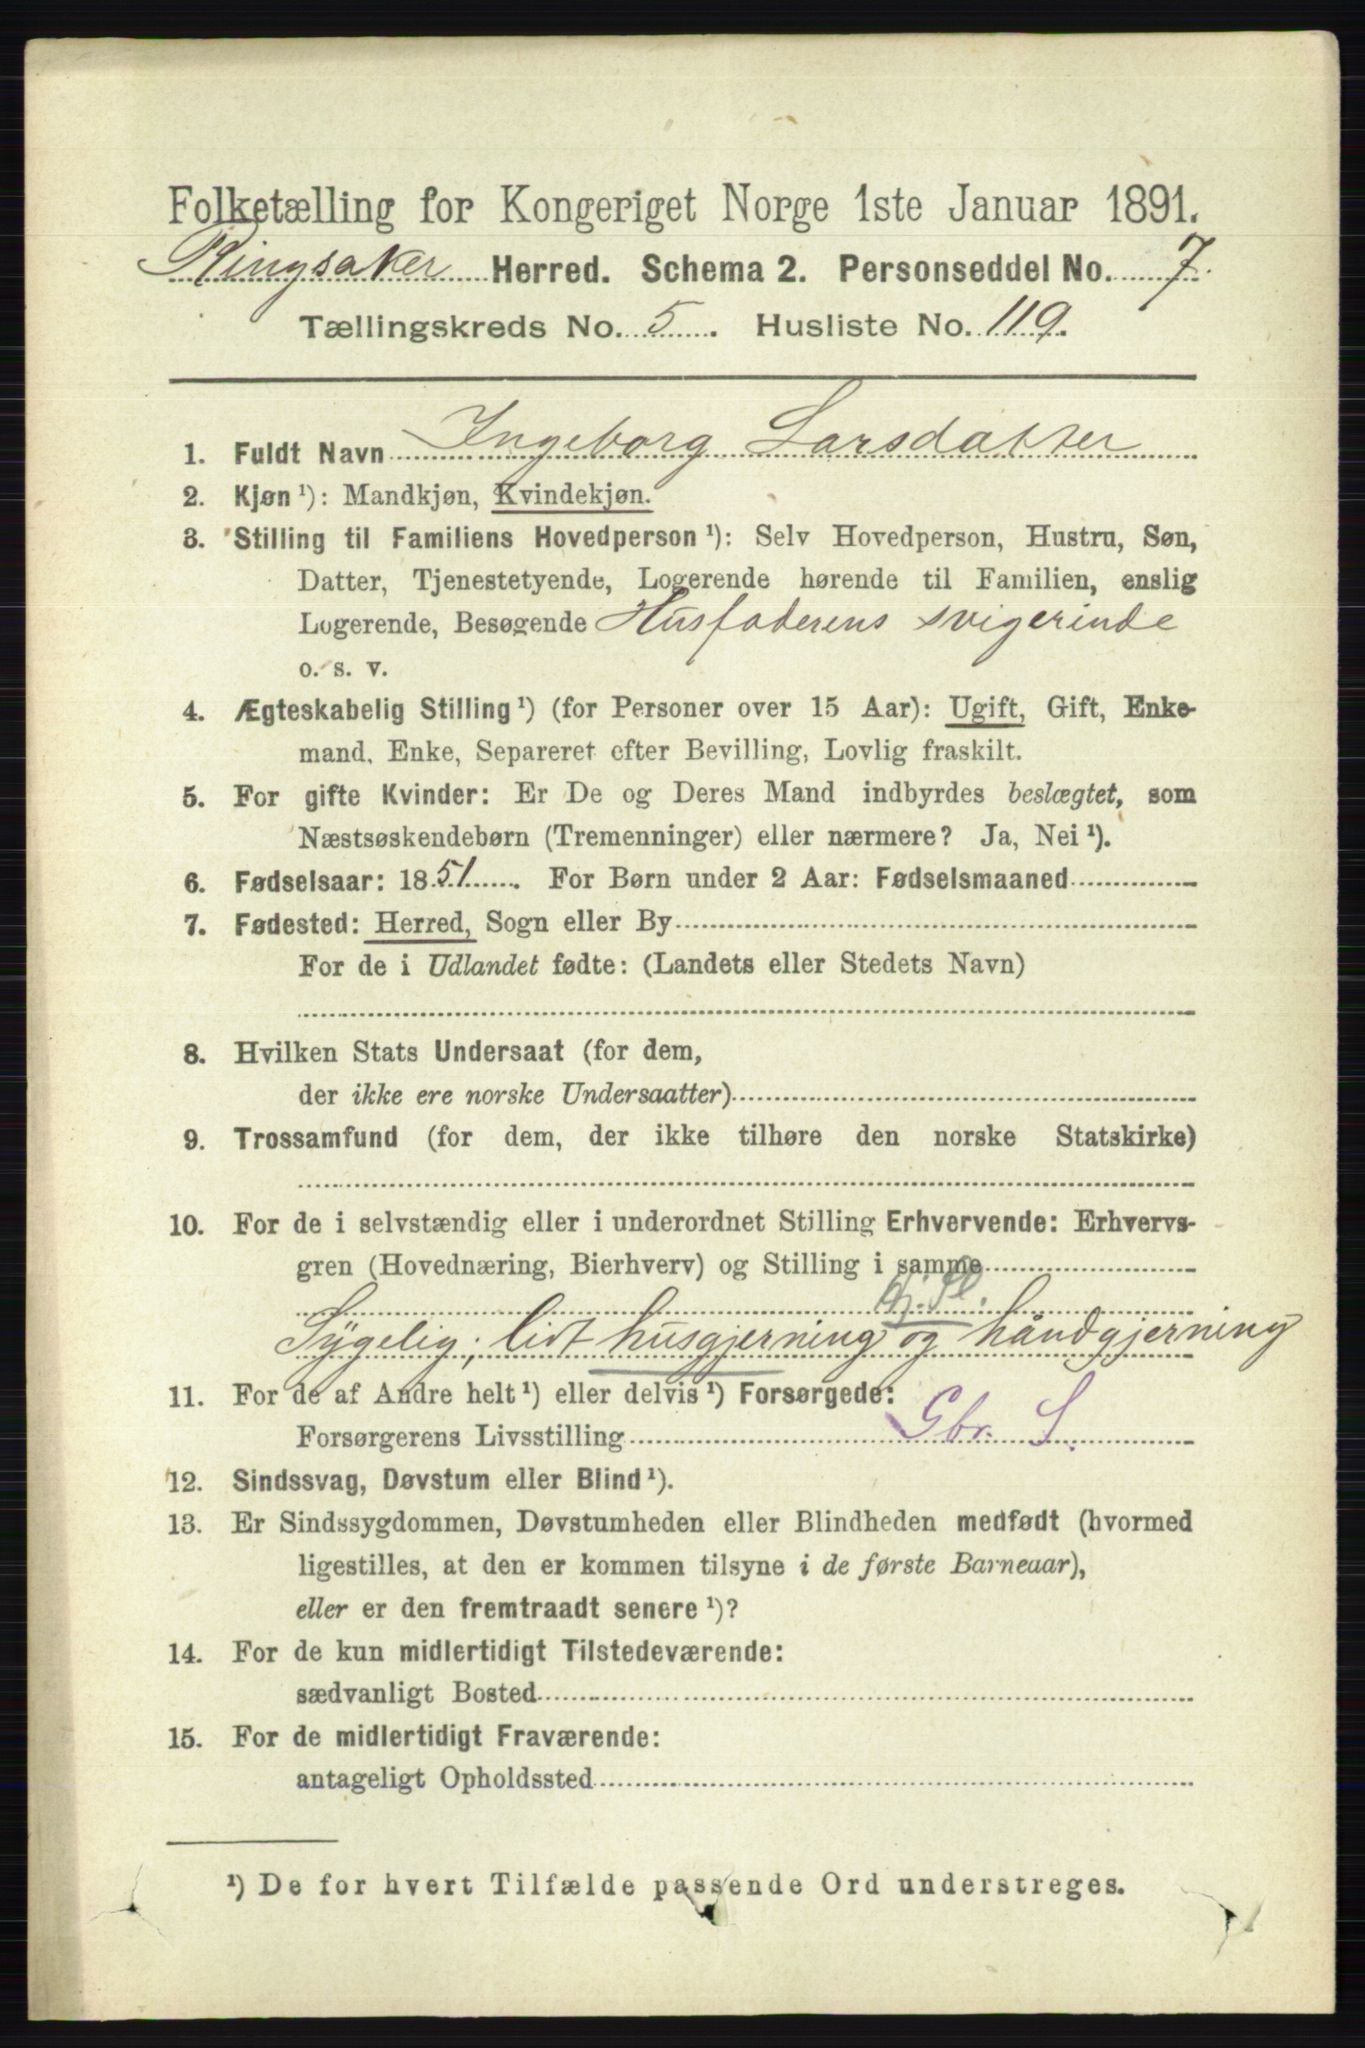 Folketælling for Kongeriget Norge 1ste Januar 1891.
Ringsaker Herred. Schema 2. Personseddel No. 7.
Tællingskreds No. 5. Husliste No. 119.
1. Fuldt Navn Ingeborg Larsdatter
2. Kjøn ¹): Mandkjøn, Kvindekjøn.
3. Stilling til Familiens Hovedperson ¹): Selv Hovedperson, Hustru, Søn,
Datter, Tjenestetyende, Logerende hørende til Familien, enslig
Logerende, Besøgende Husfaderens svigerinde
o. s. v.
4. Ægteskabelig Stilling ¹) (for Personer over 15 Aar): Ugift, Gift, Enke-
mand, Enke, Separeret efter Bevilling, Lovlig fraskilt.
5. For gifte Kvinder: Er De og Deres Mand indbyrdes beslægtet, som
Næstsøskendebørn (Tremenninger) eller nærmere? Ja, Nei ¹).
6. Fødselsaar: 1851. For Børn under 2 Aar: Fødselsmaaned
7. Fødested: Herred, Sogn eller By
For de i Udlandet fødte: (Landets eller Stedets Navn)
8. Hvilken Stats Undersaat (for dem,
der ikke ere norske Undersaatter)
9. Trossamfund (for dem, der ikke tilhøre den norske Statskirke)
10. For de i selvstændig eller i underordnet Stilling Erhvervende: Erhvervs-
gren (Hovednæring, Bierhverv) og Stilling i samme
Sygelig; lidt husgjerning og håndgjerning
11. For de af Andre helt ¹) eller delvis ¹) Forsørgede:
Forsørgerens Livsstilling Gbr. S.
12. Sindssvag, Døvstum eller Blind ¹).
13. Er Sindssygdommen, Døvstumheden eller Blindheden medfødt (hvormed
ligestilles, at den er kommen tilsyne i de første Barneaar),
eller er den fremtraadt senere ¹)?
14. For de kun midlertidigt Tilstedeværende:
sædvanligt Bosted
15. For de midlertidigt Fraværende:
antageligt Opholdssted
¹) De for hvert Tilfælde passende Ord understreges.